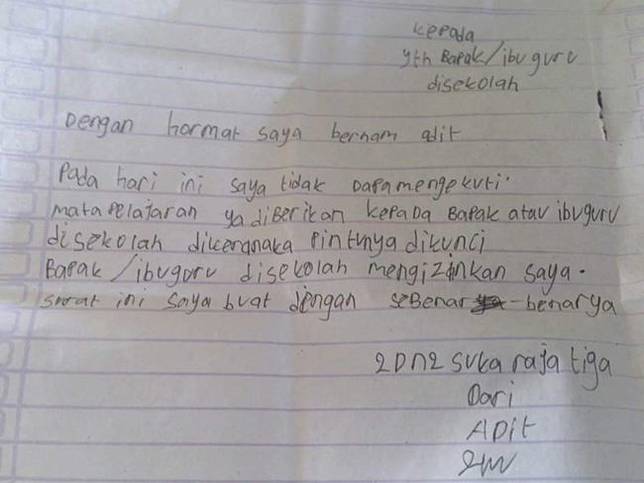 kepada
yth Bapak/ibu guru
disekolah
Dengan hormat saya bernam adit
Pada hari ini saya tidak Dapamengekuti.
mata pelajaran ya diBerikan kepada Bapak atau ibuguru
disekolah dikeranaka pintunya dikunci
Bapak/ibuguru disekolah mengizinkan saya.
surat ini saya buat dengan seBenar-benarya
2Dn2 suka raja tiga
Dari
ADit